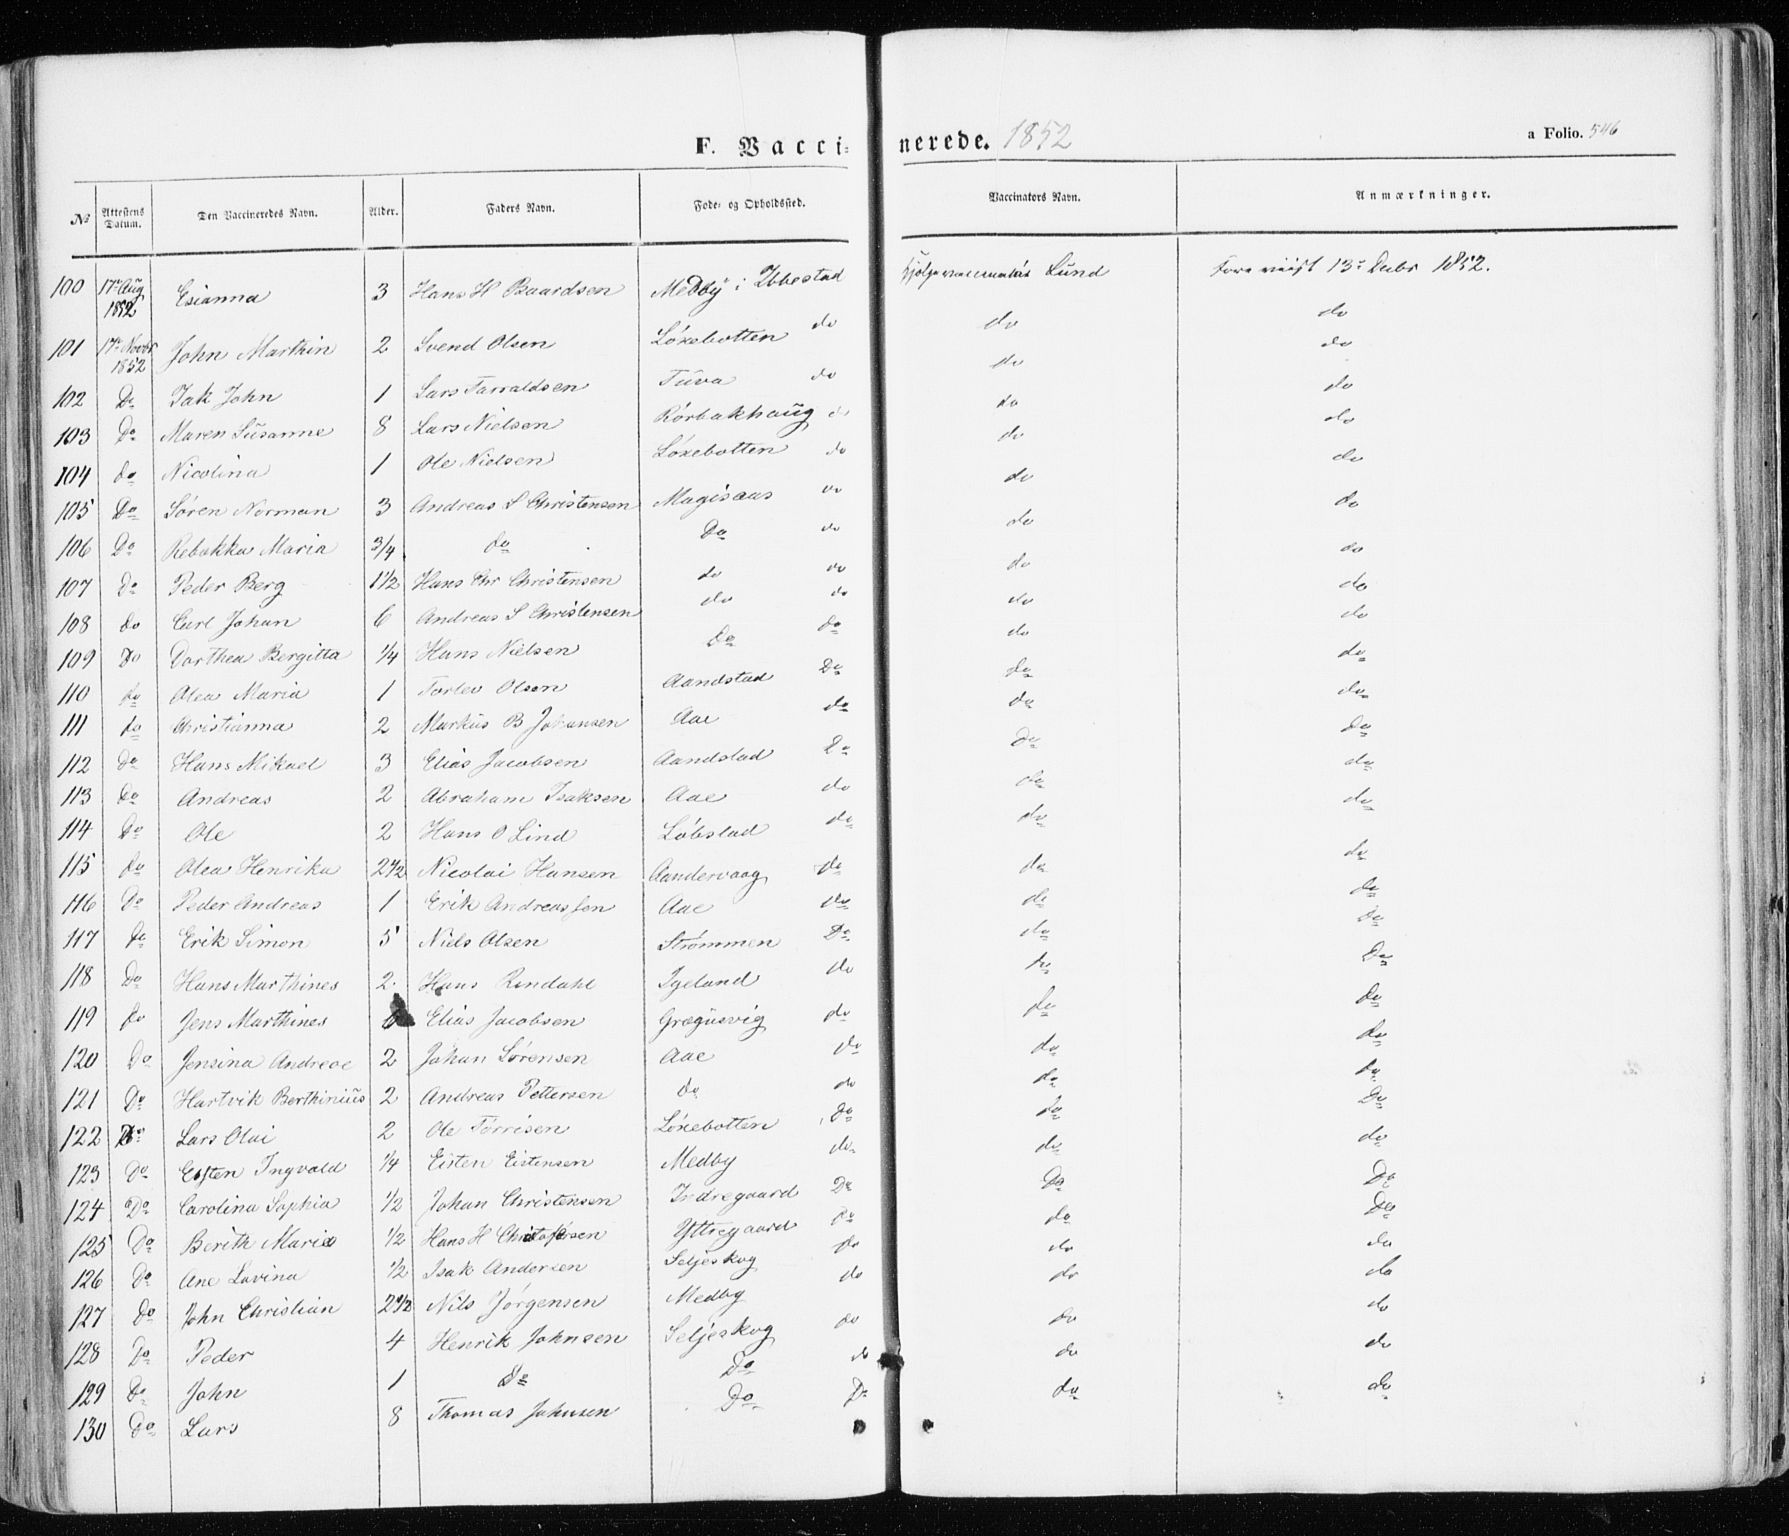 F. Vaccinerede. 1852
a Folio. 546
№ Attestens Datum. Den Vaccineredes Navn. Alder. Faders Navn. Føde- og Opholdssted. Vaccinators Navn. Anmærkninger.
100 17de Aug 1852 Esianna 3 Hans H Baardsen Medby i Ibbestad Lund Foreviist 13de Decbr 1852.
101 17de Novbr 1852 John Marthin 2 Svend Olsen Löxebotten do do do
102 Do Isak John 1 Lars Tarraldsen Tüva do do do
103 Do Maren Süsanne 8 Lars Nielsen Rörbakhaüg do do do
104 do Nicolina 1 Ole Nielsen Löxebotten do do do
105 Do Sören Norman 3 Andreas S Christensen Magisaas do do do
106 Do Rebakka Maria 3/4 do Do do do do
107 Do Peder Berg 1 1/2 Hans Chr Christensen do do do do
108 do Carl Johan 6 Andreas S Christensen do do do do
109 do Dorthea Bergitta 1/4 Hans Nielsen Do do do do
110 do Olea Maria 1 Torlev Olsen Aandstad Do do do
111 do Christianna 2 Markus B Johansen Aae do do do
112 do Hans Mikael 3 Elias Jacobsen Aandstad Do Do do
113 Do Andreas 2 Abraham Isaksen Aae do do do
114 Do Ole 2 Hans O Lind Löbstad do do do
115 do Olea Henrika 2 1/2 Nicolai Hansen Aandervaag do do do
116 Do Peder Andreas 1 Erik Andreassen Aae do do do
117 do Erik Simon 5 Niels Olsen Strömmen Do do do
118 Do Hans Marthines 2 Hans Rendahl Igeland do do Do
119 do Jens Marthines Elias Jacobsen Grægusvig do do Do
120 Do Jensina Andreae 2 Johan Sörensen Aae do do do
121 Do Hartvik Berthiniüs 2 Andreas Pettersen do do do do
122 Do Lars Olai 2 Ole Törrisen Löxebotten do do Do
123 Do Eisten Ingvald 1/4 Eisten Eistensen Medby do do do
124 Do Carolina Sophia 1/2 Johan Christensen Indregaard Do Do Do
125 Do Berith Maria 1/2 Hans H Christofersen Yttregaard do do Do
126 Do Ane Lovina 1/2 Isak Andersen Seljeskog do do do
127 Do John Christian 2 1/2 Nils Jörgensen Medby do do do
128 Do Peder 4 Henrik Johnsen Seljeskog do do do
129 Do John 1 Do Do do do do
130 Do Lars 8 Thomas Johnsen Do Do do do